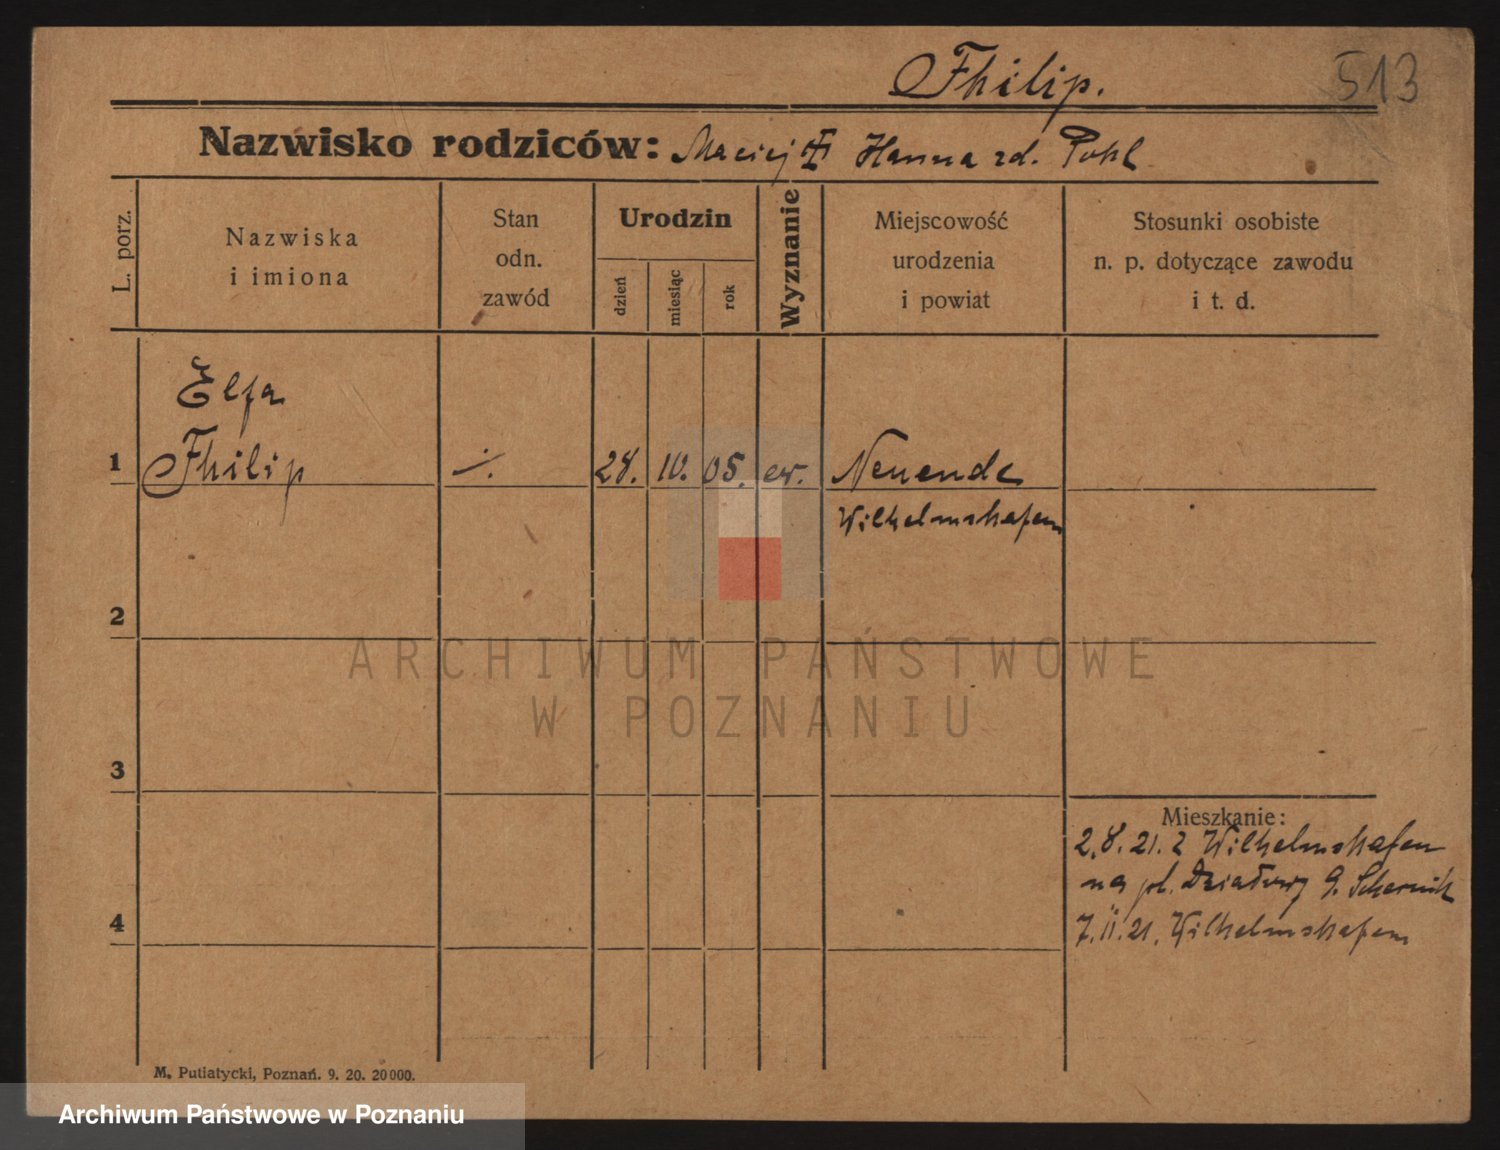 Fhilip.
513
Nazwisko rodziców: Maciej Hanna zd. Pohl
L. porz.
Nazwiska
i imiona
Stan
odn.
zawód
Urodzin
dzień
miesiąc
rok
Wyznanie
Miejscowość
urodzenia
i powiat
Stosunki osobiste
n. p. dotyczące zawodu
i t. d.
Elfa
1 Fhilip ·/. 28. 10. 05. ew. Neuende
Wilhelmshafen
2
3
4
Mieszkanie:
2.8.21. z Wilhelmshafen
na pl. Działowy 9.
7.11.21. Wilhelmshafen
M. Putiatycki, Poznań. 9. 20. 20000.
ARCHIWUM PAŃSTWOWE
W POZNANIU
Archiwum Państwowe w Poznaniu